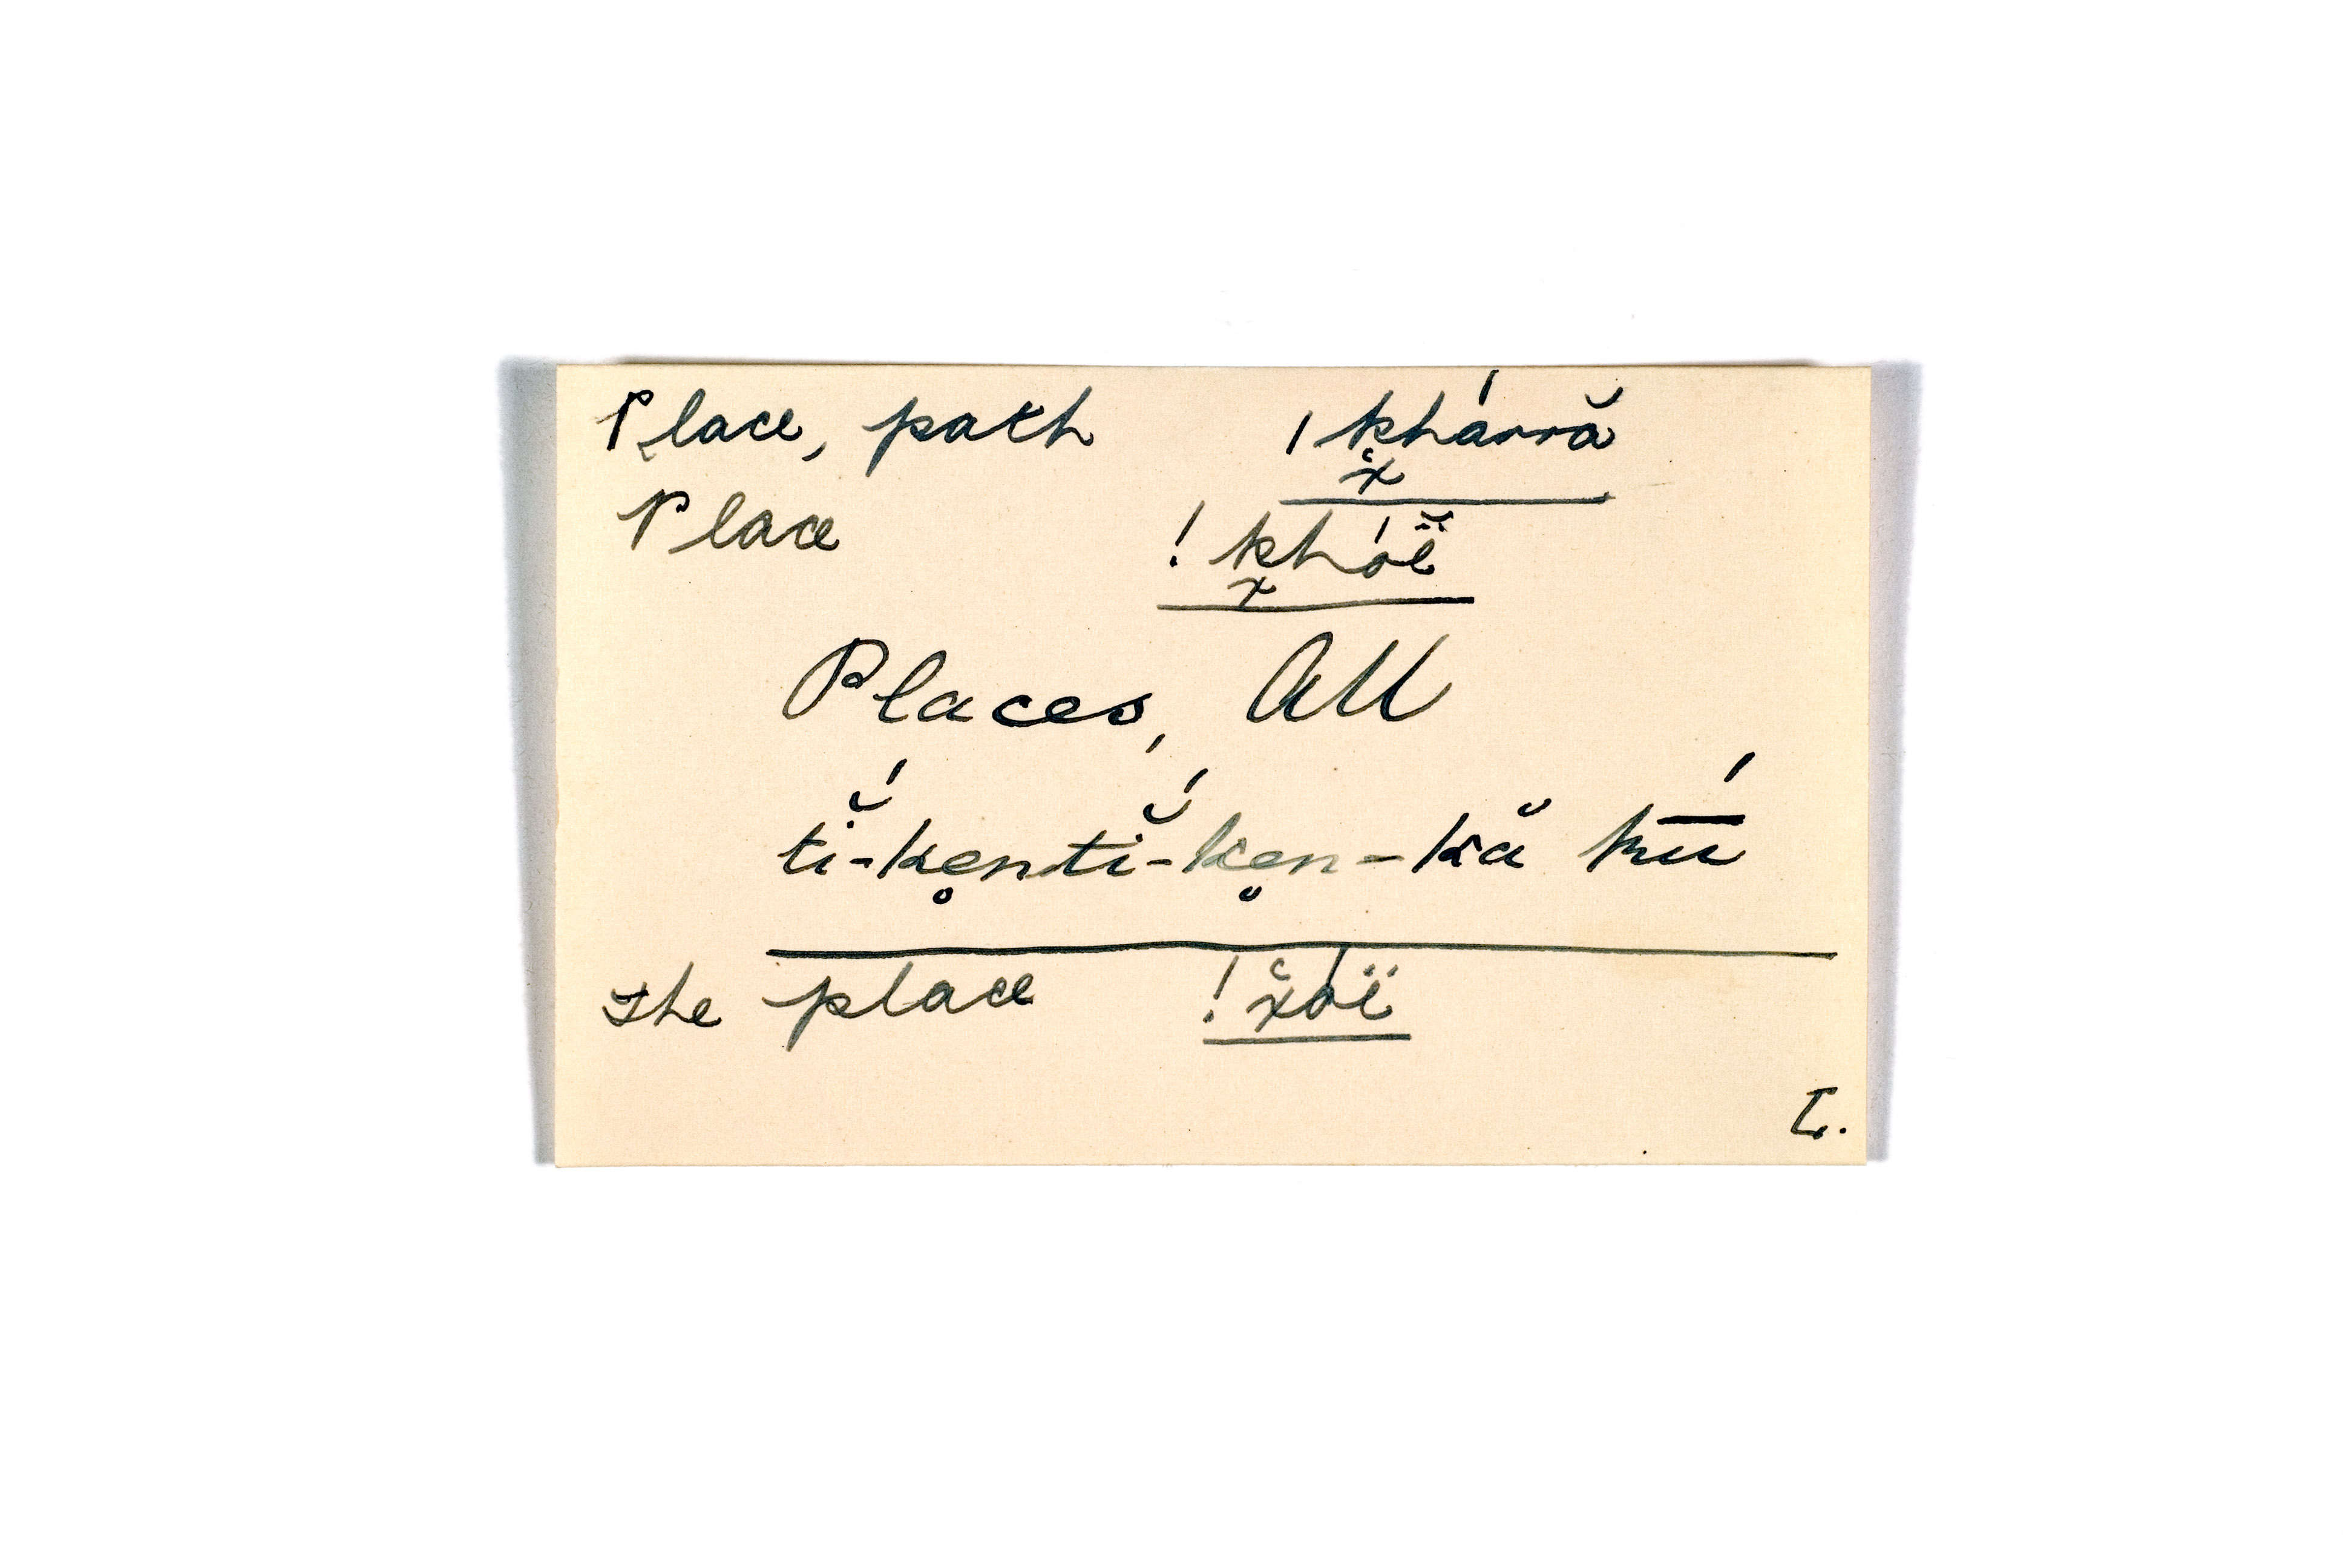 Place, path ǀkhárră
χ̆
Place !khóĭ̈
χ
Places, All
tĭ́-ke̥ntĭ́-ke̥n-kă kū́
the place !χ̆óï
L.